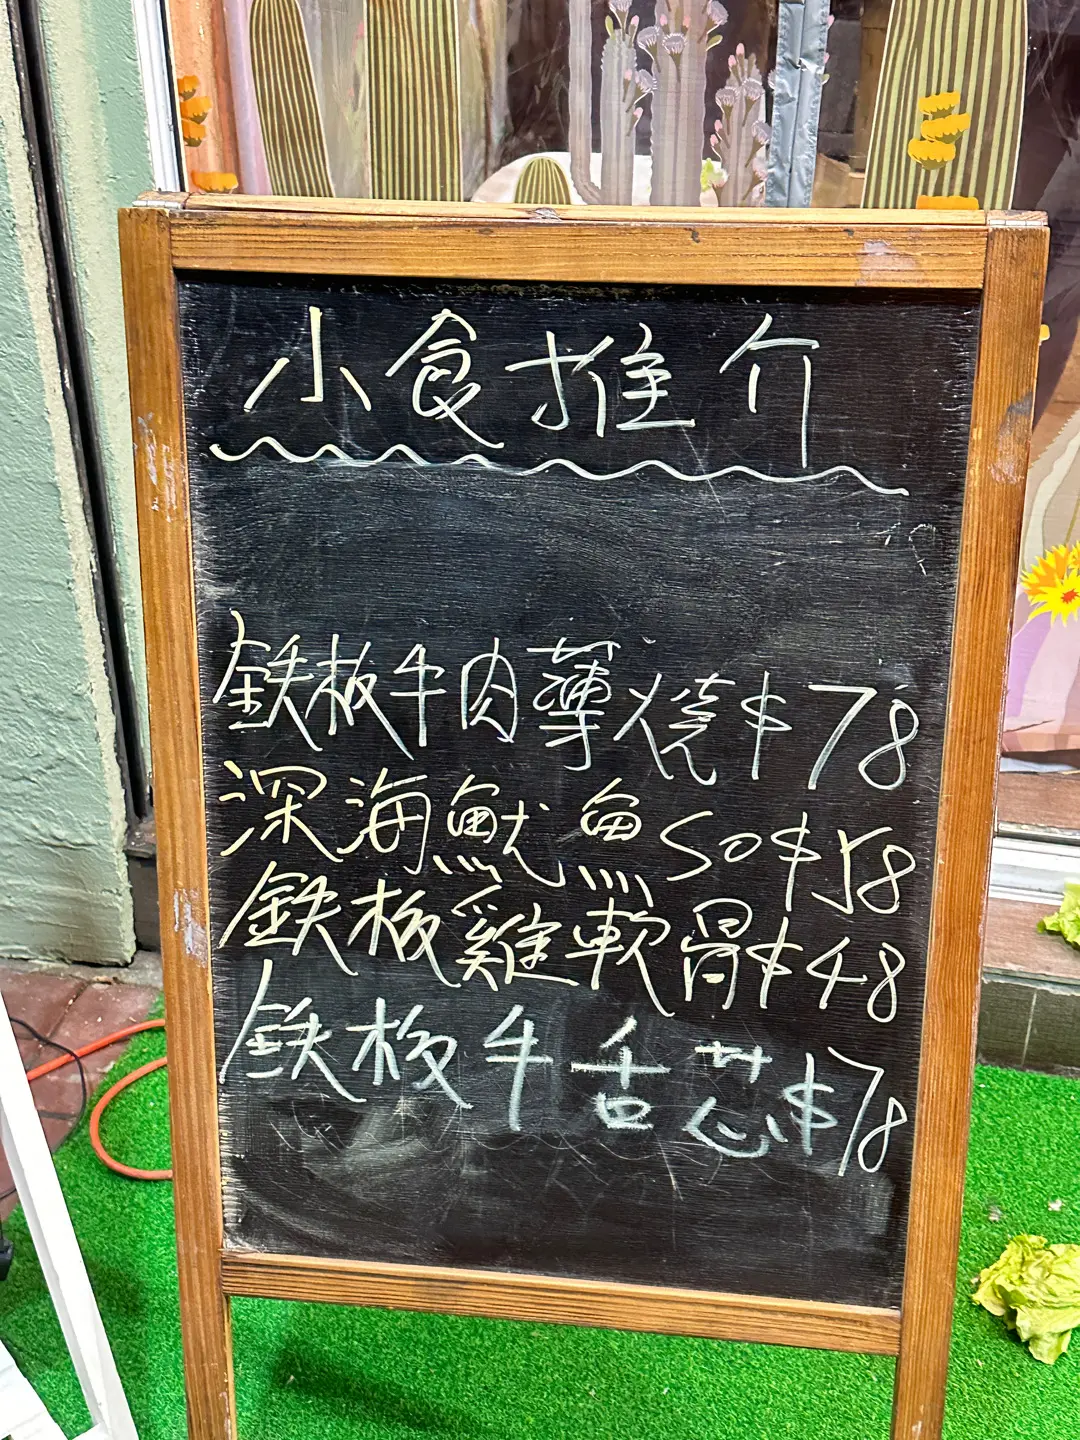 小食推介
鉄板牛肉薄燒$78
深海魷魚SO$58
鉄板雞軟骨$48
鉄板牛舌芯$78